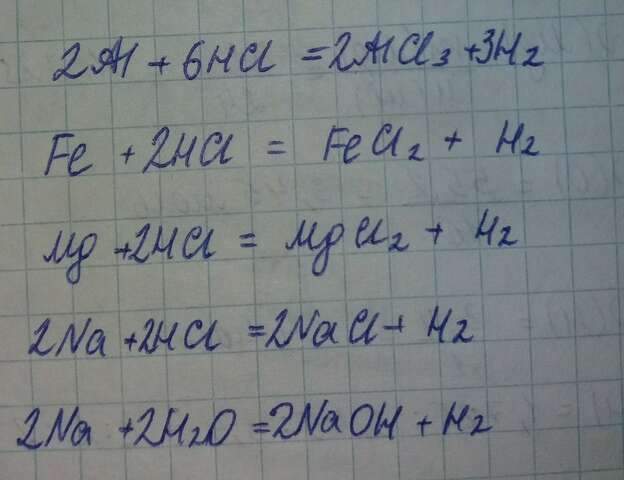 2Al + 6HCl = 2AlCl₃ + 3H₂
Fe + 2HCl = FeCl₂ + H₂
Mg + 2HCl = MgCl₂ + H₂
2Na + 2HCl = 2NaCl + H₂
2Na + 2H₂O = 2NaOH + H₂